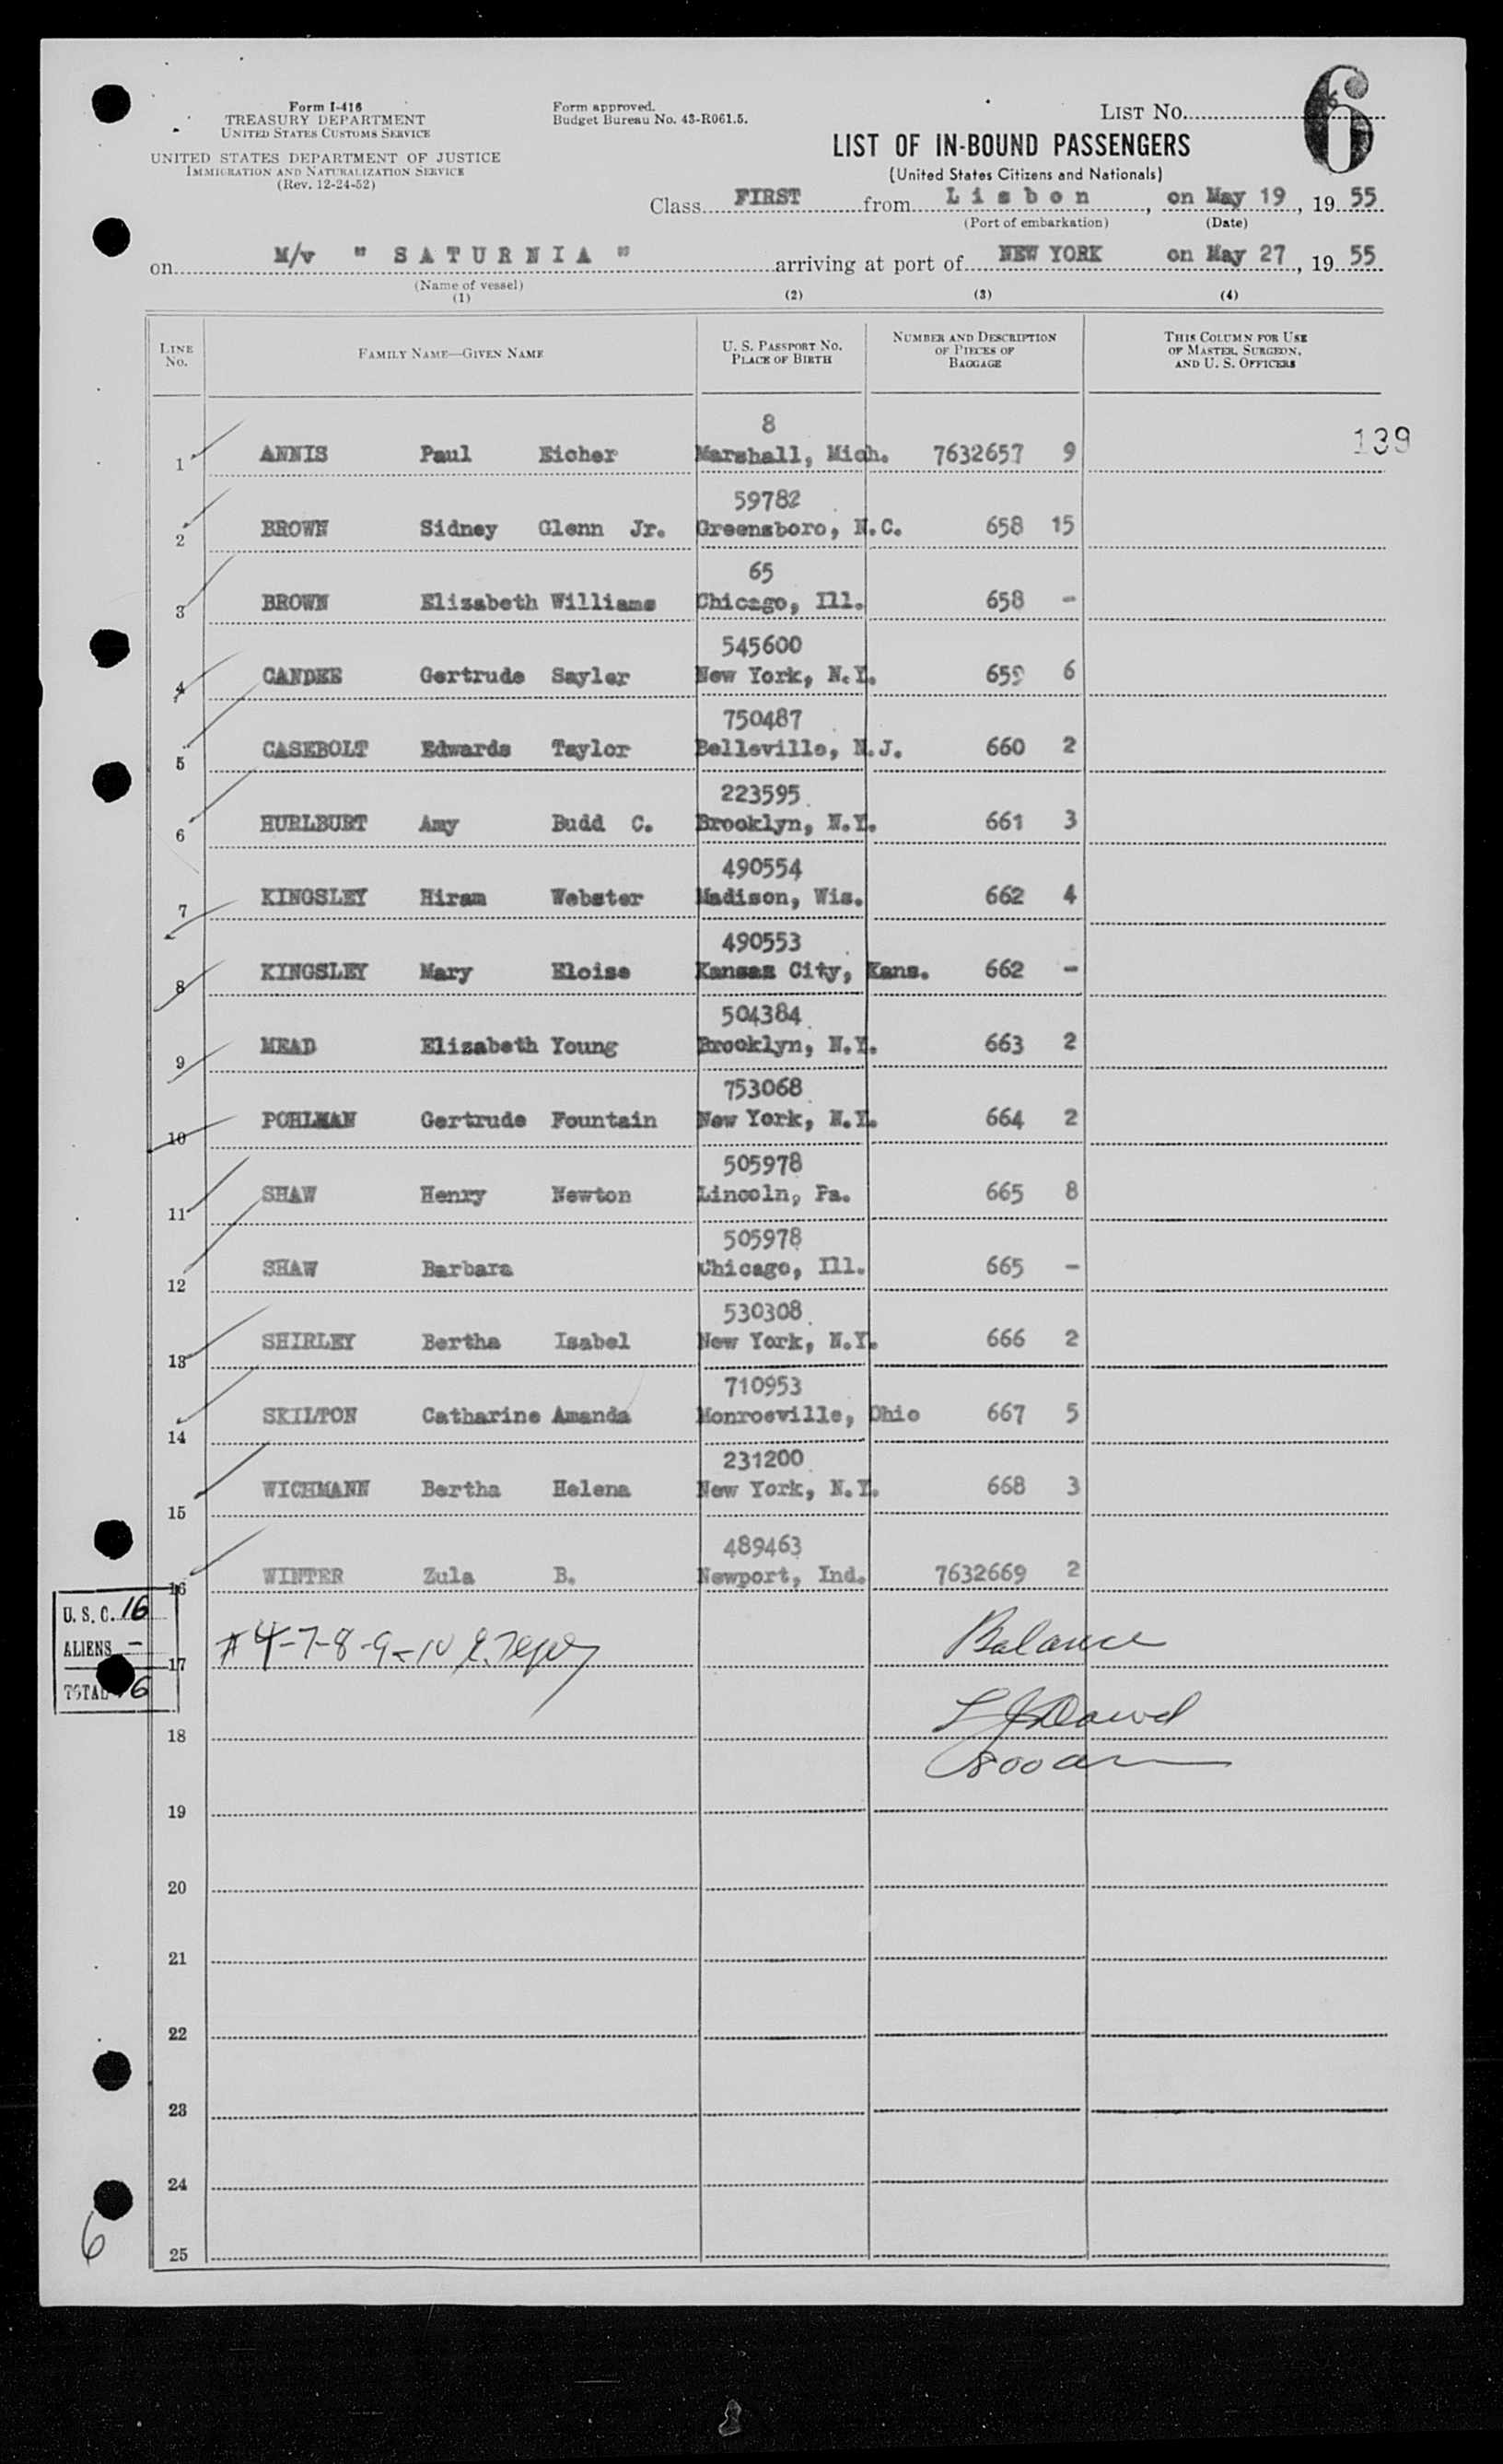 Form I-416
TREASURY DEPARTMENT
UNITED STATES CUSTOMS SERVICE
UNITED STATES DEPARTMENT OF JUSTICE
IMMIGRATION AND NATURALIZATION SERVICE
(Rev. 12-24-52)
Form approved.
Budget Bureau No. 43-R061.5.
LIST NO. 6
LIST OF IN-BOUND PASSENGERS
(United States Citizens and Nationals)
Class FIRST from Lisbon, on May 19, 19 55
(Port of embarkation) (Date)
on M/v " SATURNIA " arriving at port of NEW YORK on May 27, 19 55
(Name of vessel)
(1) (2) (3) (4)
LINE NO. FAMILY NAME—GIVEN NAME U. S. PASSPORT NO. PLACE OF BIRTH NUMBER AND DESCRIPTION OF PIECES OF BAGGAGE THIS COLUMN FOR USE OF MASTER, SURGEON, AND U. S. OFFICERS
8
1 ANNIS Paul Eicher Marshall, Mich. 7632657 9 139
59782
2 BROWN Sidney Glenn Jr. Greensboro, N.C. 658 15
65
3 BROWN Elizabeth Williams Chicago, Ill. 658 -
545600
4 CANDEE Gertrude Sayler New York, N.Y. 659 6
750487
5 CASEBOLT Edwards Taylor Belleville, N.J. 660 2
223595
6 HURLBURT Amy Budd C. Brooklyn, N.Y. 661 3
490554
7 KINGSLEY Hiram Webster Madison, Wis. 662 4
490553
8 KINGSLEY Mary Eloise Kansas City, Kans. 662 -
504384
9 MEAD Elizabeth Young Brooklyn, N.Y. 663 2
753068
10 POHLMAN Gertrude Fountain New York, N.Y. 664 2
505978
11 SHAW Henry Newton Lincoln, Pa. 665 8
505978
12 SHAW Barbara Chicago, Ill. 665 -
530308
13 SHIRLEY Bertha Isabel New York, N.Y. 666 2
710953
14 SKILTON Catharine Amanda Monroeville, Ohio 667 5
231200
15 WICHMANN Bertha Helena New York, N.Y. 668 3
489463
16 WINTER Zula B. Newport, Ind. 7632669 2
U. S. C. 16
ALIENS -
TOTAL 16
17 #4-7-8-9-10 Balance
18
19
20
21
22
23
24
25
6